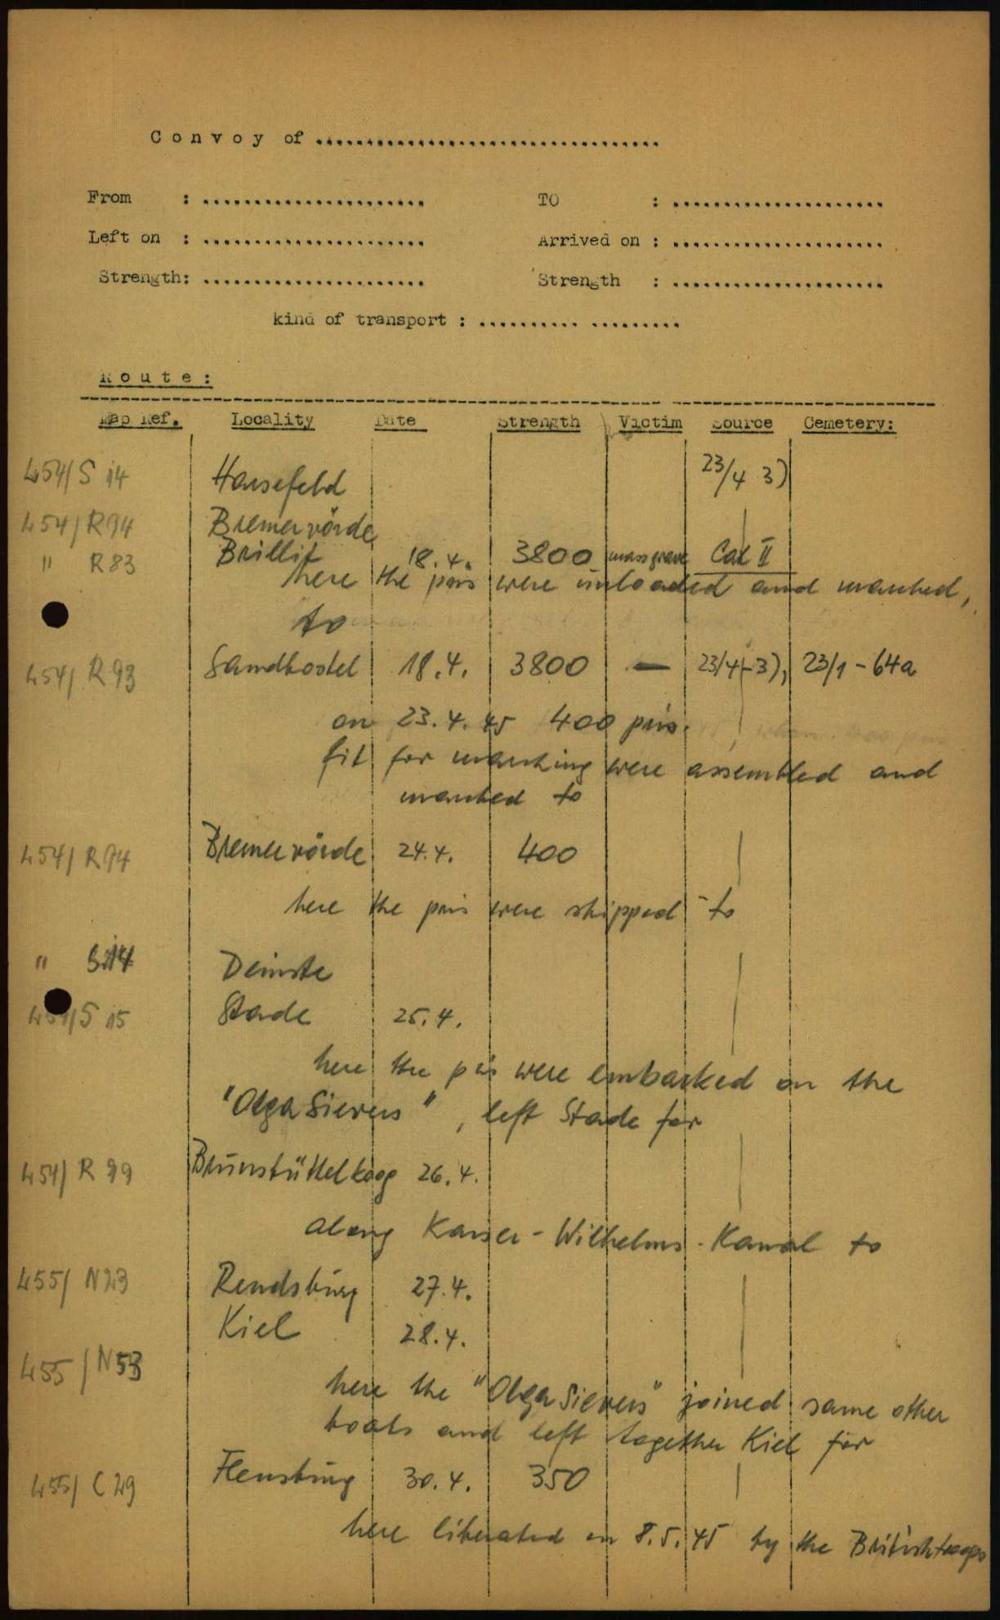 Convoy of ..................................
From : ...................... TO : .....................
Left on : ...................... Arrived on : .....................
Strength: ...................... Strength : .....................
kind of transport : .......... .........
Route:
Map Ref. Locality Date Strength Victim Source Cemetery:
454/S 14 Harsefeld 23/4 3)
454/R94 Bremervörde
" R83 Brillit 18.4. 3800 mass grave Cat II
here the pris were unloaded and marched,
to
454/R93 Sandbostel 18.4. 3800 — 23/4-3), 23/1-64a
on 23.4.45 400 pris.
fit for marching were assembled and
marched to
454/R94 Bremervörde 24.4. 400
here the pris were shipped to
" S14 Deinste
454/S 15 Stade 25.4.
here the pris were embarked on the
"Olga Sievers", left Stade for
454/R 99 Brunsbüttelkoog 26.4.
along Kaiser-Wilhelms-Kanal to
455/N23 Rendsburg 27.4.
Kiel 28.4.
455/N53
here the "Olga Sievers" joined some other
boats and left together Kiel for
455/C29 Flensburg 30.4. 350
here liberated on 8.5.45 by the British troops